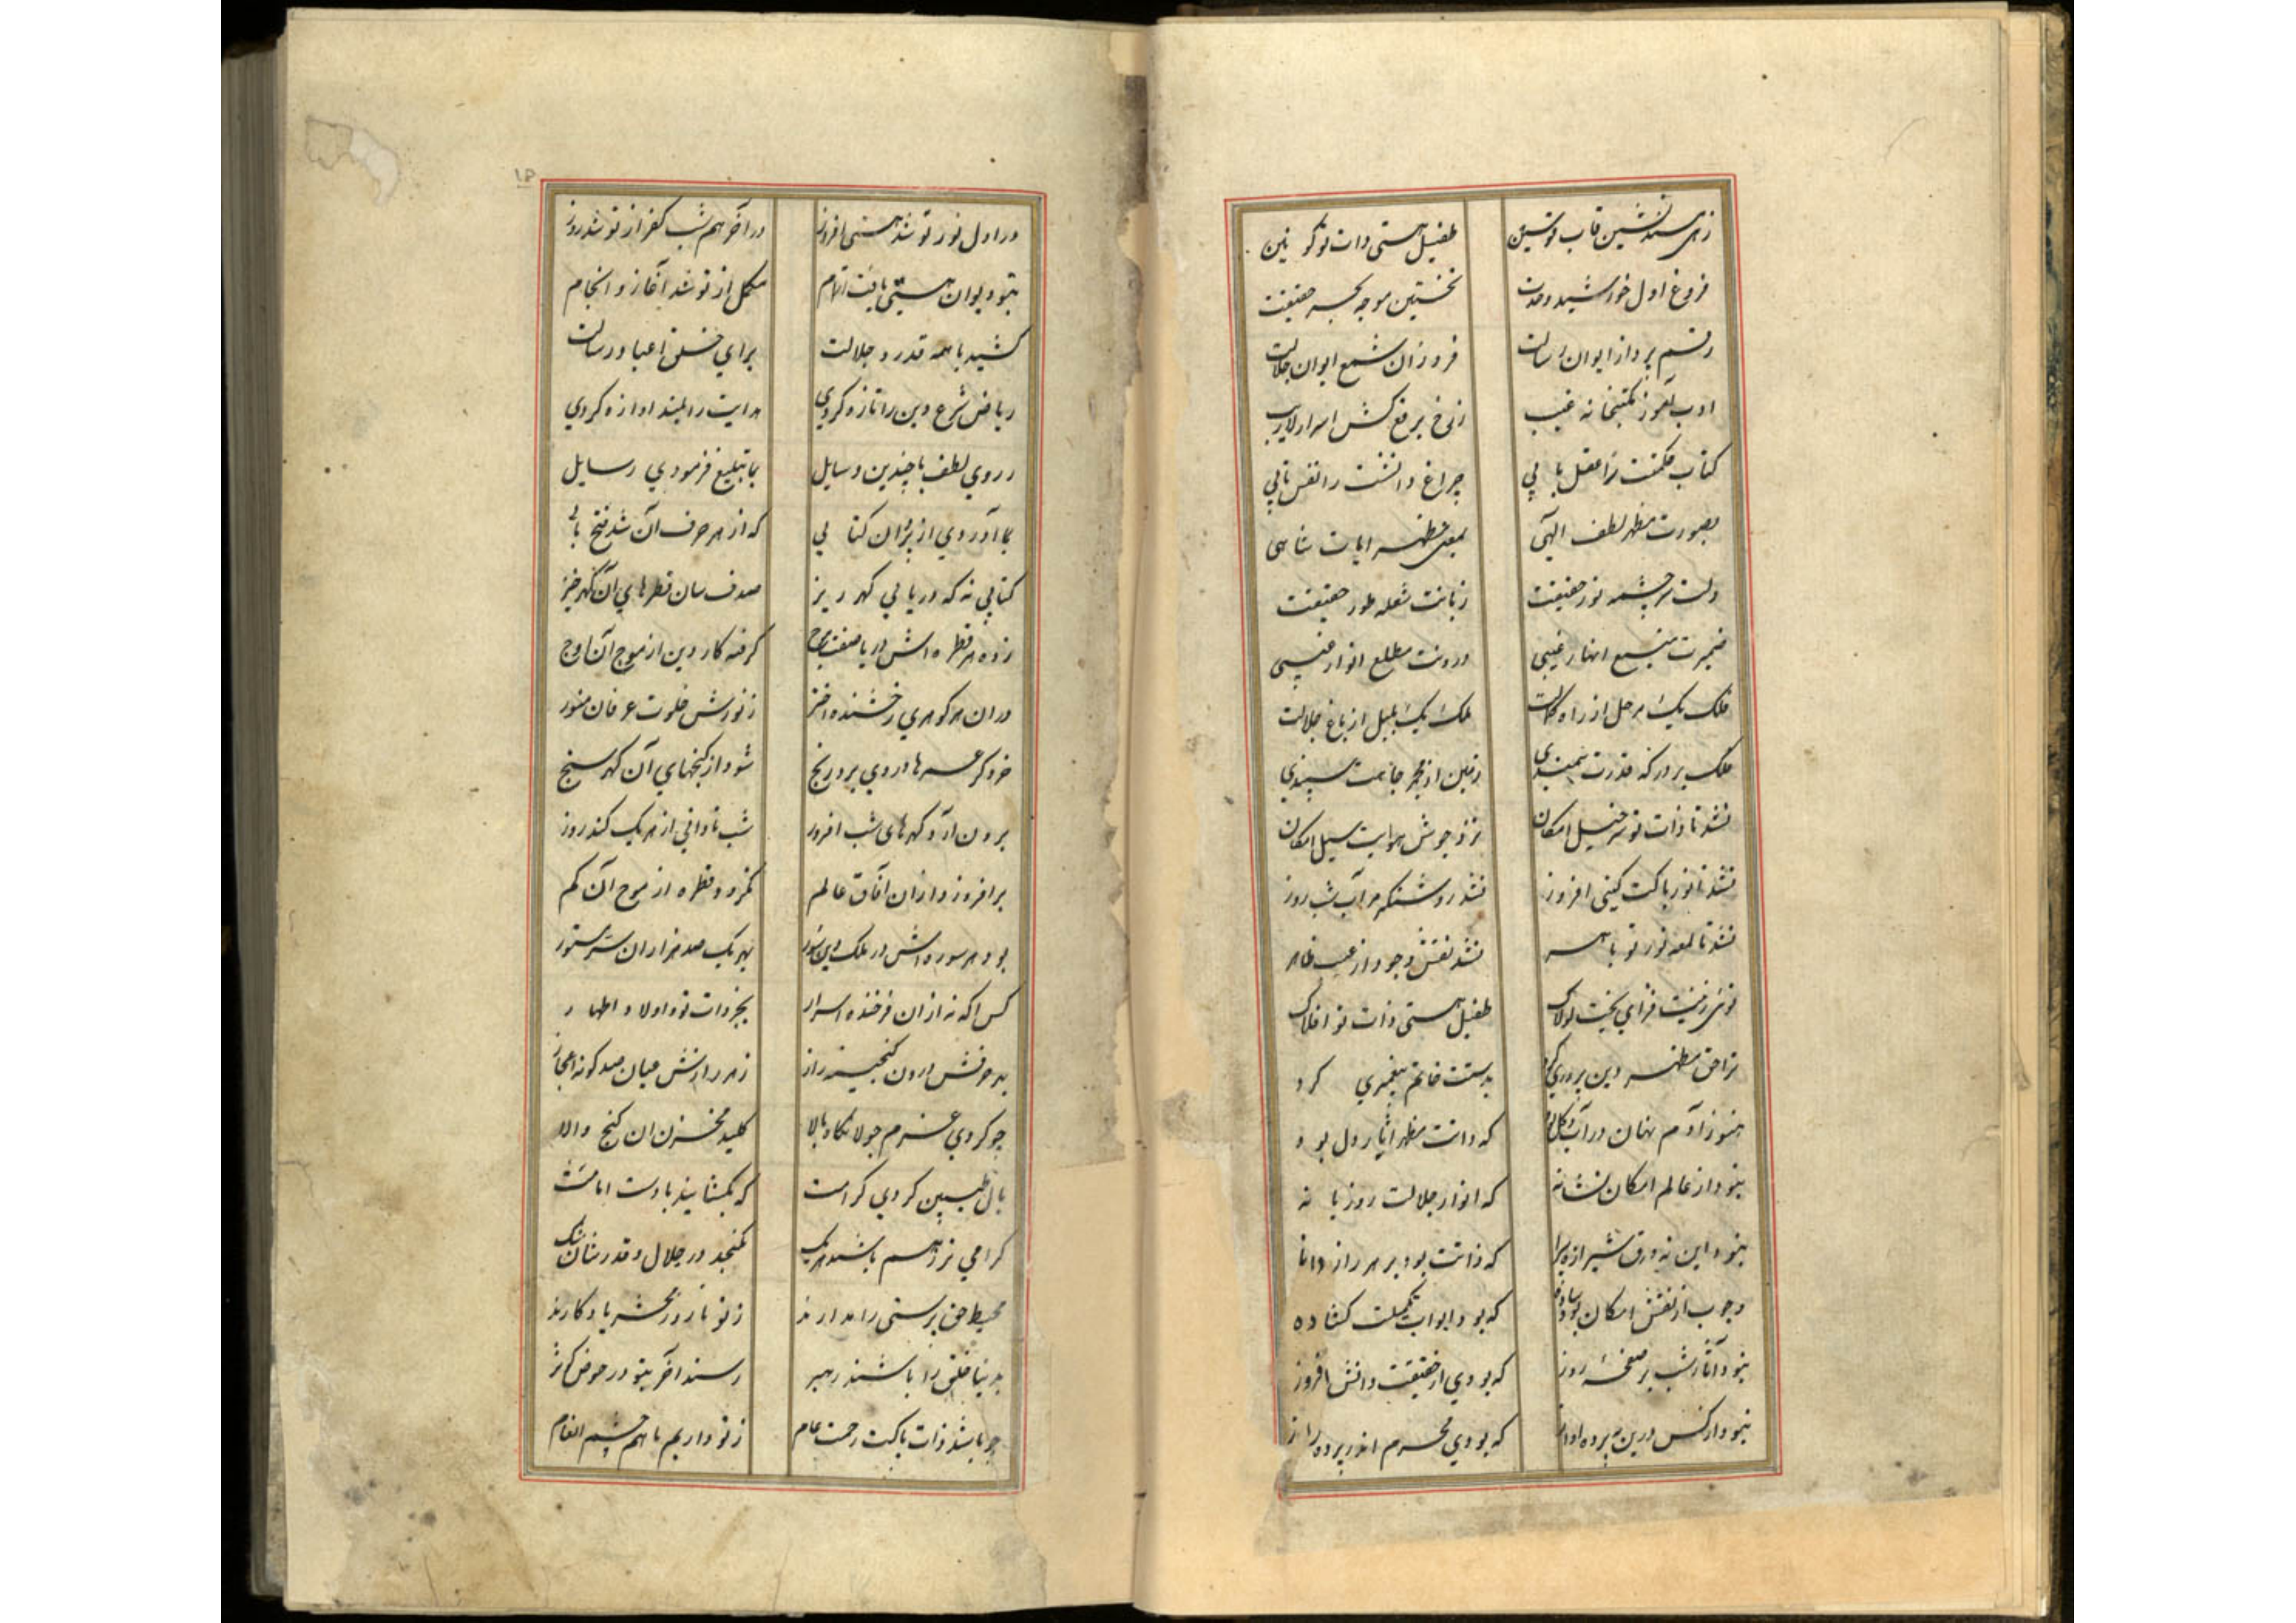 زهی مسندنشین قاب قوسین طفیل هستی ذات تو کونین
فروغ اول خورشید وحدت نخستین موجه بحر حقیقت
رقم پرداز ایوان رسالت فروزان شمع ایوان جلالت
ادب آموز مکتبخانه غیب زرخ برقع کش اسرار لاریب
کتاب حکمتت را عقل بابی چراغ دانشت را نفس تابی
بصورت مظهر لطف الهی بمعنی مظهر ایات شاهی
دلت سرچشمه نور حقیقت زبانت شعله طور حقیقت
ضمیرت منبع انهار غیبی درونت مطلع انوار غیبی
فلک یک مرحل از راه ملک یک بلبل از باغ جلالت
ملک بر درکه قدرت سپندی
نشد تا ذات تو سرخیل امکان نزد جوش هوایت سیل امکان
نشد تا نور پاکت کیتی افروز نشد روشنکر شب روز
نشد تا لمعه نور تو باهر نشد نقش وجود از غیب ظاهر
توئی زینت فزای تخت لولاک طفیل هستی ذات تو افلاک
ترا حق مظهر دین پروری کرد بدستت خاتم پیغمبری کرد
هنوز آدم نهان در آب و کل بود که ذاتت مظهر ایثار دل بود
نبود از عالم امکان نشانه که انوار جلالت روز یا نه
نبود این نه ورق شیرازه که ذاتت بود بر هر راز دانا
وجوب از نقش امکان بود ساده که بود ابواب کشاده
نبود آثار شب بر صفحه روز که بودی از حقیقت دانش افروز
نبود از کس درین پرده آواز که بودی محرم اندر پرده راز
۱۴
در اول نور تو شد هستی افروز در آخر هم شب کفر از تو شد روز
بتو دیوان هستی یافت اتمام مکمل از تو شد آغاز و انجام
کشید با همه قدر و جلالت برای خلق رسالت
ریاض شرع دین را تازه کردی هدایت را بلند اوازه کردی
ز روی لطف با چندین وسایل بما تبلیغ فرمودی رسایل
بما آوردی از یزدان کتابی که از هر حرف آن شد فتح بابی
کتابی نه که دریایی کهر ریز صدف سان قطرهای آن کهر خیز
زده هر قطره اش دریا صفت موج کرفته کار دین از موج آن اوج
در ان هر کوهری رخشنده اختر ز نورش خلوت عرفان منور
خرد کر در وی برد رنج شود از کنجهای آن کهر سنج
برون آرد کهرهای شب افروز شب نادانی از هر یک کند روز
برافروزد از ان آفاق عالم نکردد قطره از موج آن کم
بود هر سوره اش در ملک دین سور بهر یک صد هزاران سر مستور
کس اکه نه از ان فرخنده اسرار بجز ذات تو و اولاد اطهار
بهر حرفش درون کنجینه راز ز هر رازش عیان صد کونه اعجاز
چو کردی عزم جولانکاه بالا کلید مخزن ان کنج والا
بال طیبین کردی کرامت که بکشایند با دست امامت
کرامی تر ز هم باشند هر یک نکنجد در جلال و قدرشان شک
محیط حق پرستی را مدارند ز تو تا روز محشر یادکارند
بدنیا خلق را باشند رهبر رسند آخر بتو در حوض کوثر
چو باشد ذات پاکت رحمت عام ز تو داریم ما هم چشم انعام